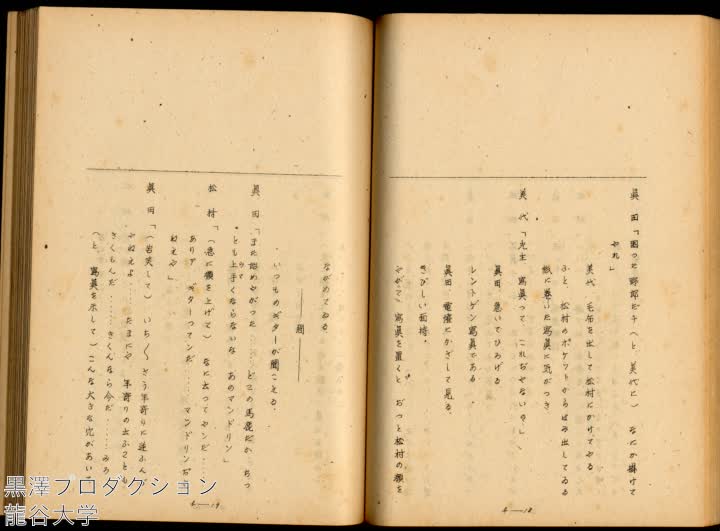 眞田「困った野郎だナ（と 美代に） なにか掛けて
やれ」
美代 毛布を出して松村にかけてやる
ふと、松村のポケットからはみ出してゐる
紙に巻いた寫眞に気がつき
美代「先生 寫眞って これぢやないの？」
眞田、急いでひろげる
レントゲン寫眞である
眞田、電燈にかざして見る、
さびしい面持。
やがて、寫眞を置くと ぢっと松村の顔を
4—18
ながめてゐる
——間——
いつものギターが聞こえる、
眞田「また始めやがった……どこの馬鹿だか ちっ
とも上手くならないな あのマンドリン」
松村「（急に顔を上げて） なに云ってやンだ……
ありア ギターってンだ……マンドリンぢア
ねえや」
眞田「（苦笑して） いち〱さう年寄りに逆ふん
ぢやねえよ……たまにや 年寄りの云ふことも
きくもんだ……きくんなら今だ……みろ
（と 寫眞を示して）こんな大きな穴があい
4—19
黒澤プロダクション
龍谷大学